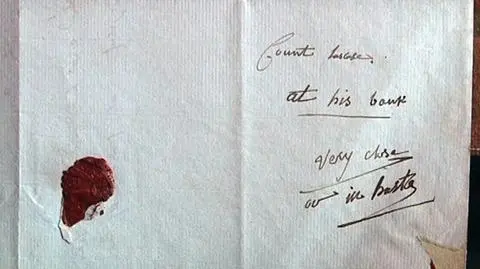 Count lascase.
at his bank
very close
or in haste